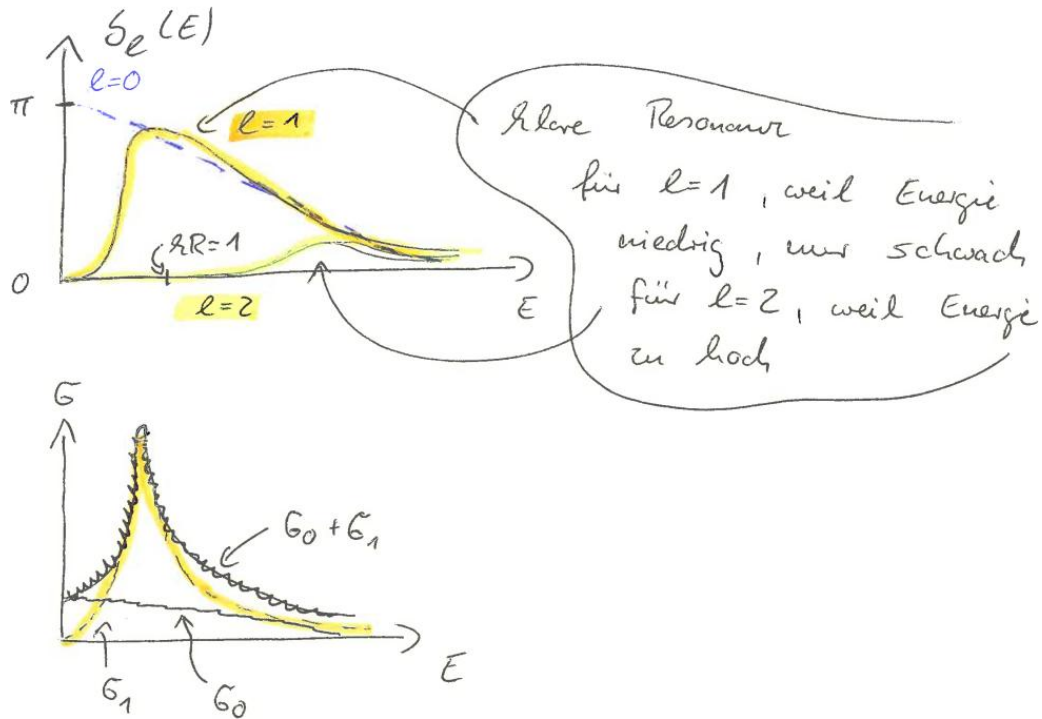 δ_l(E)
l=0
π
l=1
klare Resonanz
für l=1, weil Energie
niedrig, nur schwach
für l=2, weil Energie
zu hoch
kR=1
0
l=2
E
σ
σ_0 + σ_1
E
σ_1
σ_0